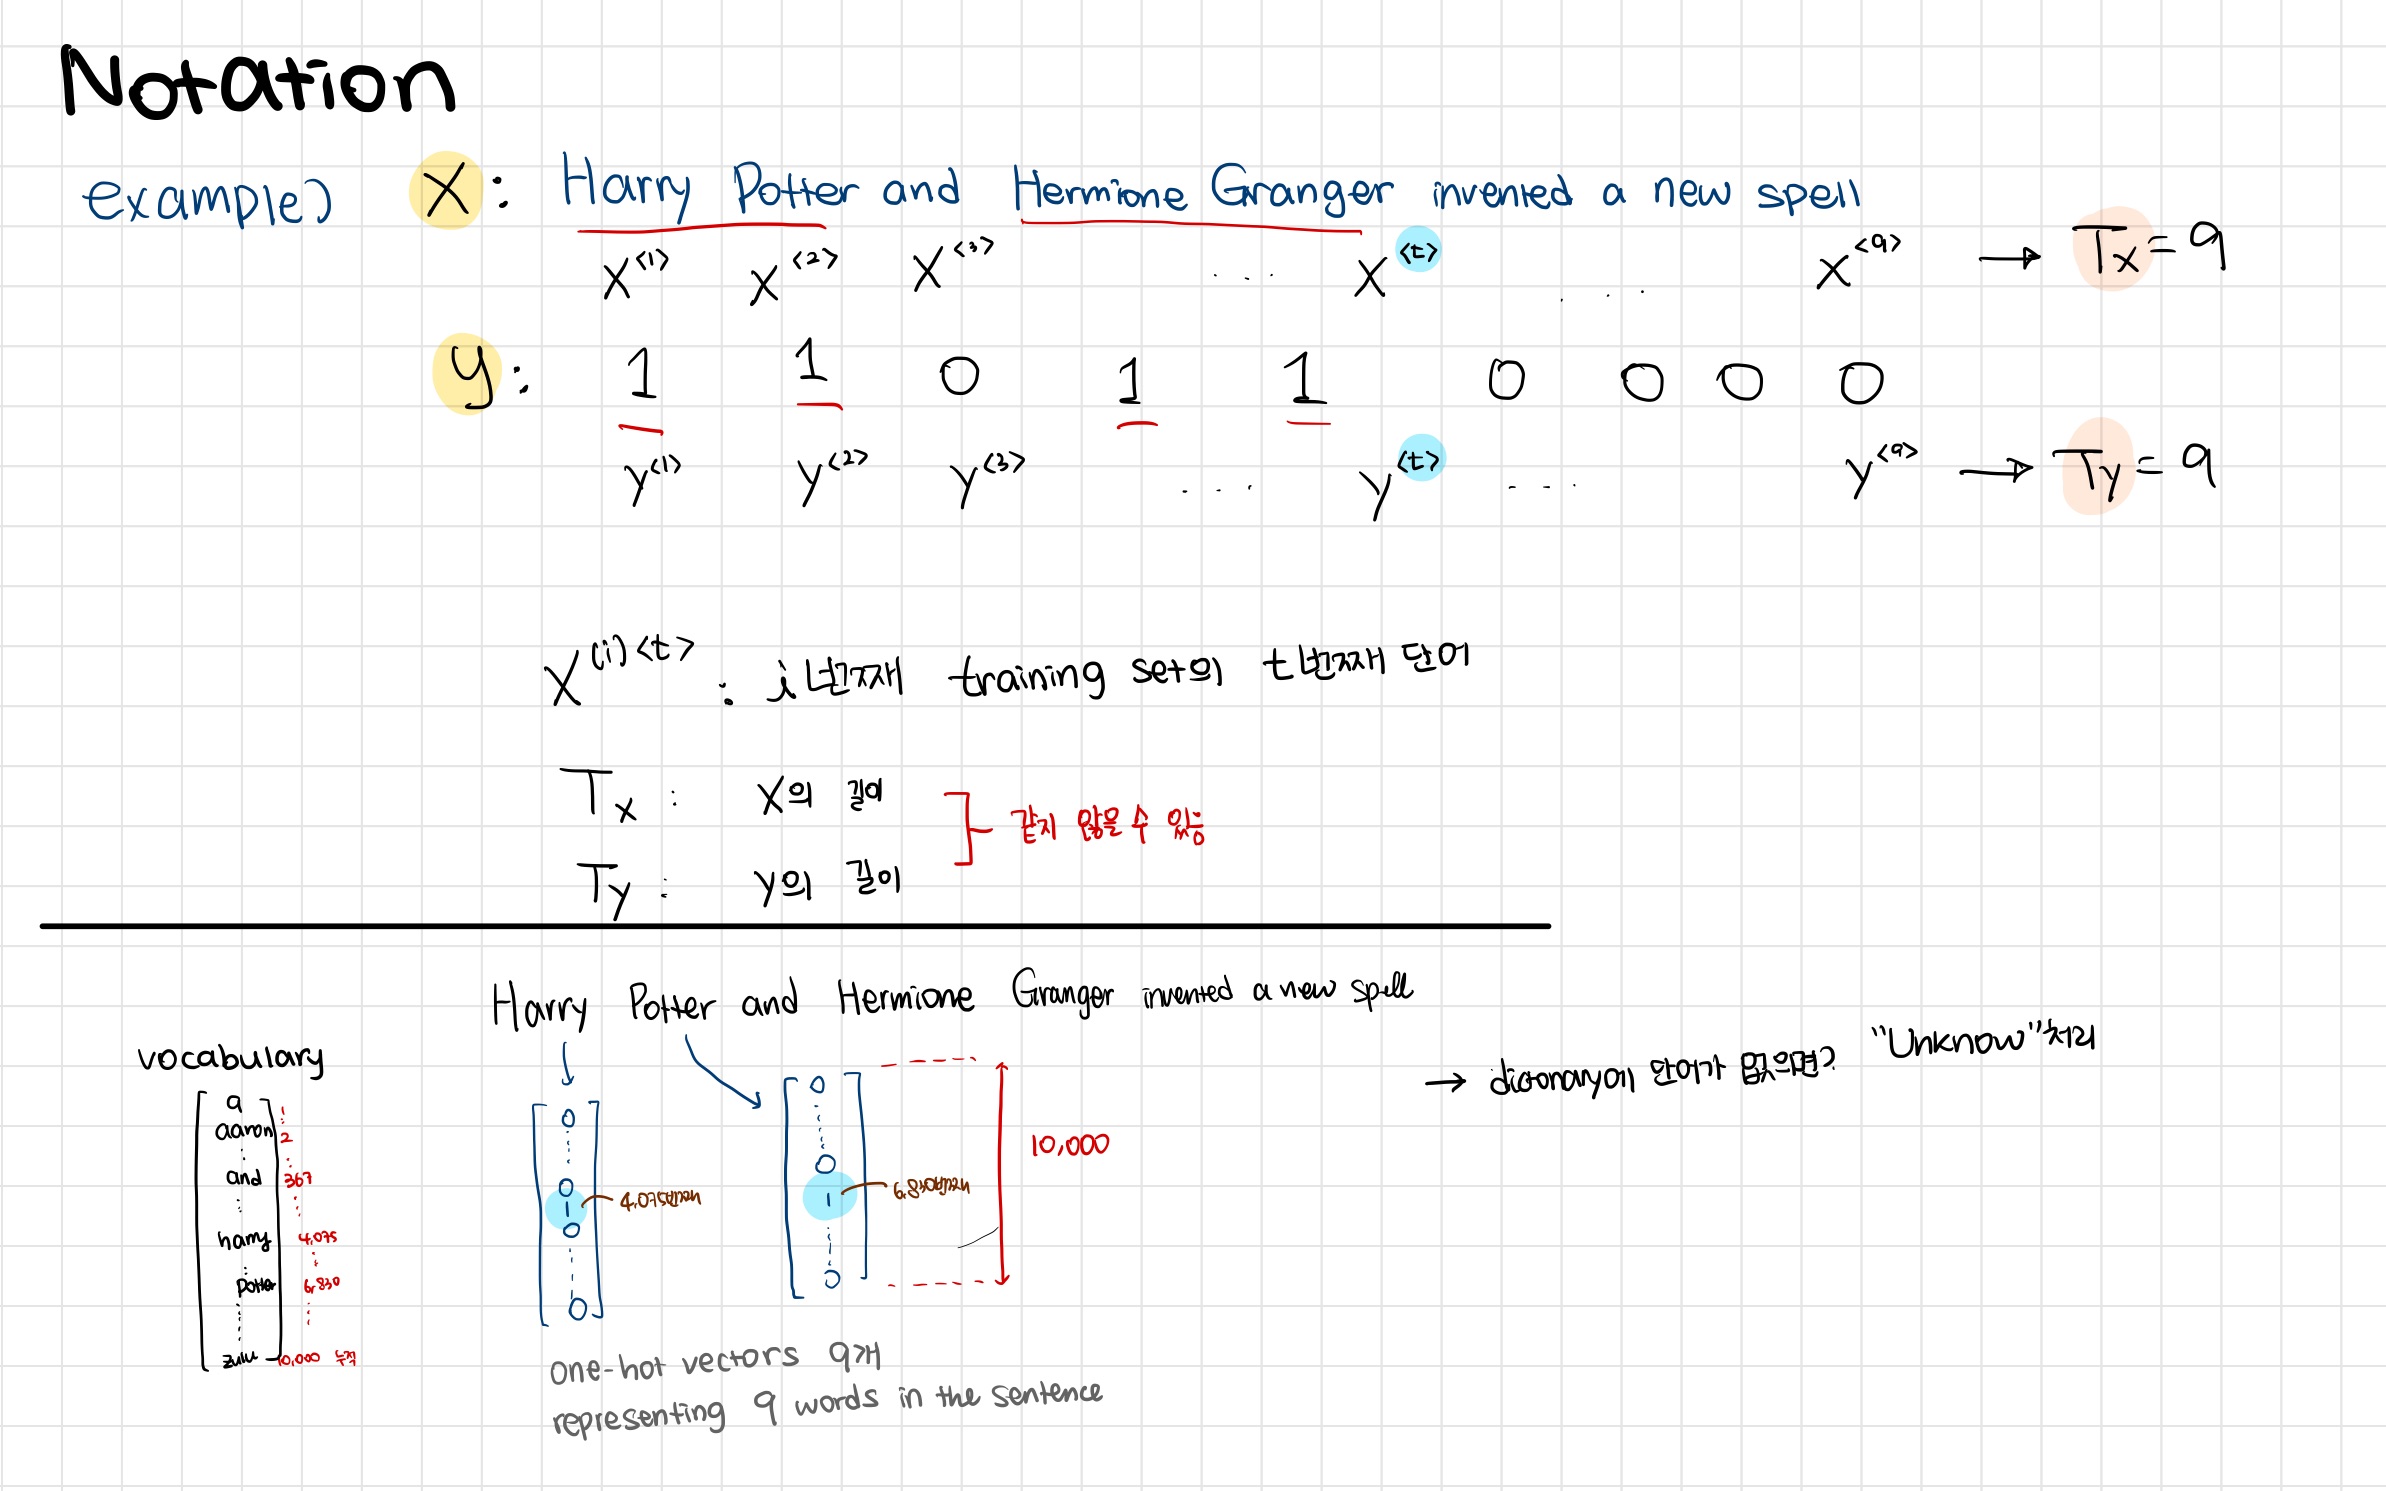 Notation
example) X: Harry Potter and Hermione Granger invented a new spell
X<1> X<2> X<3> ... X<t> ... X<9> → Tx = 9
y: 1 1 0 1 1 0 0 0 0
y<1> y<2> y<3> ... y<t> ... y<9> → Ty = 9
X(i)<t> : i번째 training set의 t번째 단어
Tx : X의 길이
같지 않을 수 있음
Ty : y의 길이
Harry Potter and Hermione Granger invented a new spell
→ dictonary에 단어가 없으면? "Unknow"처리
vocabulary
a 1
aaron 2
and 367
harry 4,075
potter 6,830
zulu 10,000
0 0 1 0 0
4,075번째
0 0 1 0
6,830번째
10,000
one-hot vectors 9개
representing 9 words in the sentence